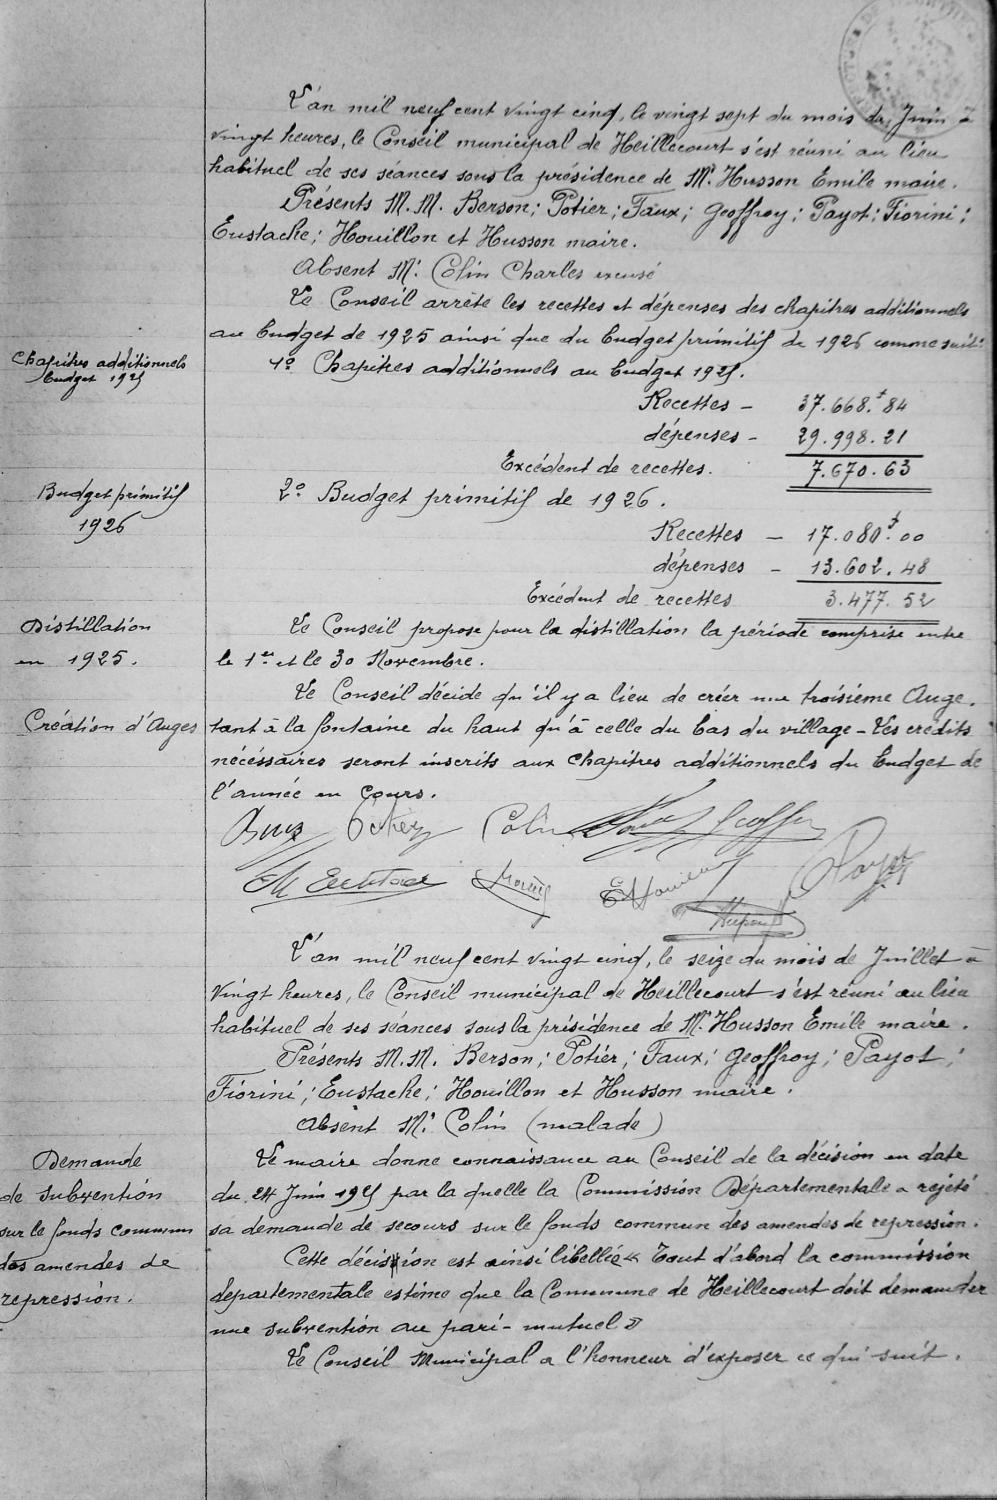 L'an mil neuf cent vingt cinq, le vingt sept du mois de Juin à
vingt heures, le Conseil municipal de Heillecourt s'est réuni au lieu
habituel de ses séances sous la présidence de Mr. Husson Emile maire.
Présents M.M. Berson; Potier; Faux; Geoffroy; Payot; Fiorini;
Eustache; Houillon et Husson maire.
Absent Mr. Colin Charles excusé
Le Conseil arrête les recettes et dépenses des chapitres additionnels
au budget de 1925 ainsi que du budget primitif de 1926 comme suit:
Chapitres additionnels
budget 1925
1º Chapitres additionnels au budget 1925.
Recettes - 37.668.f 84
dépenses - 29.998.21
Excédent de recettes. 7.670.63
Budget primitif
1926
2º Budget primitif de 1926.
Recettes - 17.080.f 00
dépenses - 13.602.48
Excédent de recettes 3.477.52
Distillation
en 1925.
Le Conseil propose pour la distillation la période comprise entre
le 1er et le 30 Novembre.
Le Conseil décide qu'il y a lieu de créer une troisième Auge.
Création d'Auges
tant à la fontaine du haut qu'à celle du bas du village - Les crédits
nécéssaires seront inscrits aux chapitres additionnels du budget de
l'année en cours.
Potier Colin Geoffroy
EM Eustache EHouillon Payot
Husson
L'an mil neuf cent vingt cinq, le seize du mois de Juillet à
vingt heures, le Conseil municipal de Heillecourt s'est réuni au lieu
habituel de ses séances sous la présidence de Mr. Husson Emile maire.
Présents M.M. Berson; Potier; Faux; Geoffroy; Payot;
Fiorini; Eustache; Houillon et Husson maire.
Absent Mr. Colin (malade)
Demande
de subvention
sur le fonds commun
des amendes de
répression.
Le maire donne connaissance au Conseil de la décision en date
du 24 Juin 1925 par la quelle la Commission Départementale a rejeté
sa demande de secours sur le fonds commun des amendes de repression.
Cette décision est ainsi libellée « Tout d'abord la commission
départementale estime que la Commune de Heillecourt doit demander
une subvention au pari-mutuel »
Le Conseil Municipal a l'honneur d'exposer ce qui suit.